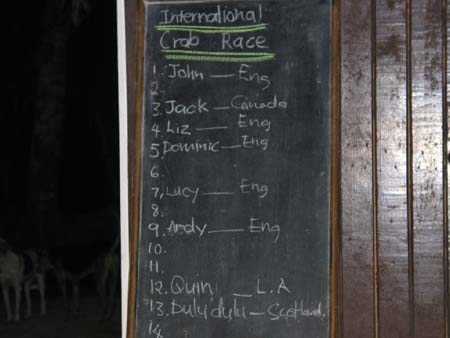 International
Crab Race
1. John — Eng
2.
3. Jack — Canada
4. Liz — Eng
5. Dominic — Eng
6.
7. Lucy — Eng
8.
9. Andy — Eng
10.
11.
12. Quin — L.A
13. Dulu'dulu — Scotland.
14.